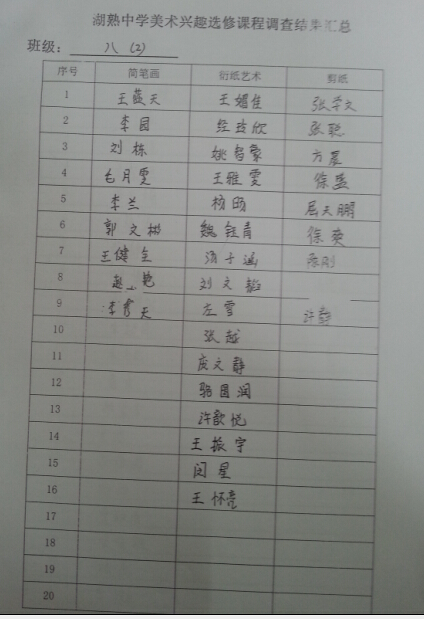 湖熟中学美术兴趣选修课程调查结果汇总
班级： 八（2）
序号 简笔画 衍纸艺术 剪纸
1 王蓝天 王媚佳 张学文
2 李园 张聪
3 刘栋 姚智蒙 方晨
4 毛月雯 王雅雯 徐盛
5 李兰 杨旸 屈天鹏
6 郭文彬 魏钰青 徐奕
7 王健全 陈刚
8 赵艳 刘文韬
9 李 天 左雪 许
10 张越
11 庞文静
12 骆圆润
13 许歆悦
14 王振宇
15 闵星
16 王怀亮
17
18
19
20